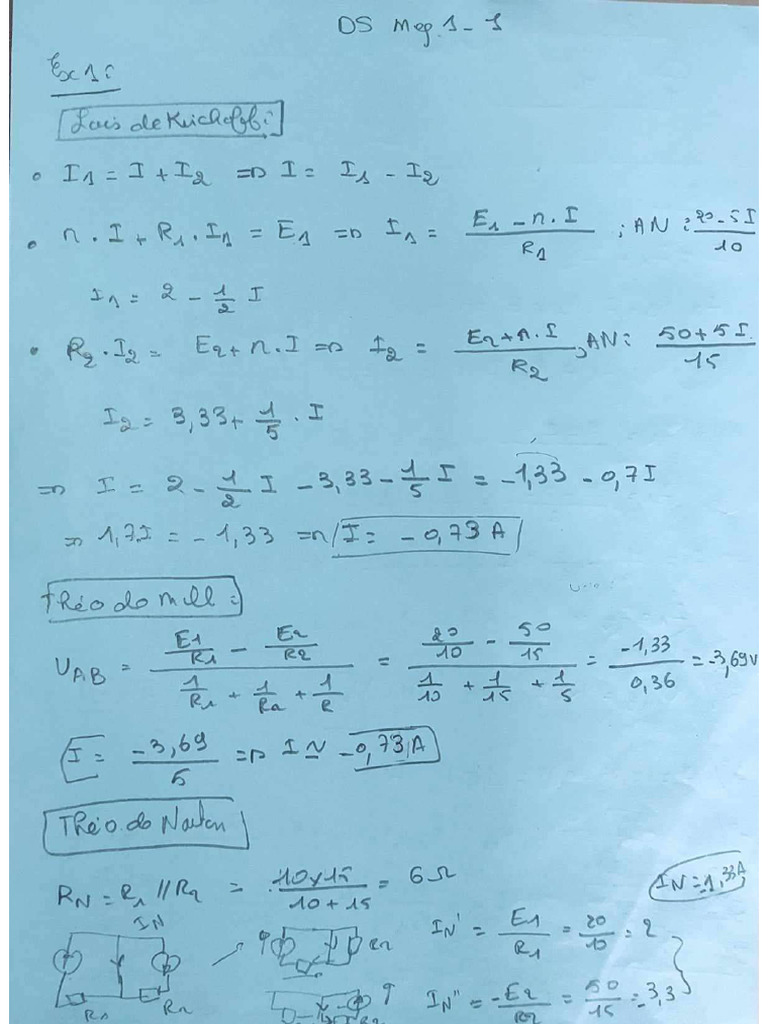 DS Meg. 1 - 1
Ex 1 :
Lois de Kirchoff :
• I1 = I + I2 => I = I1 - I2
• r . I + R1 . I1 = E1 => I1 = (E1 - r . I)/R1 ; AN : (20 - 5 I)/10
I1 = 2 - 1/2 I
• R2 . I2 = E2 + r . I => I2 = (E2 + r . I)/R2 , AN : (50 + 5 I)/15
I2 = 3,33 + 1/5 . I
=> I = 2 - 1/2 I - 3,33 - 1/5 I = -1,33 - 0,7 I
=> 1,7 I = - 1,33 => I = - 0,73 A
Théo do mill :
UAB = (E1/R1 - E2/R2)/(1/R1 + 1/R2 + 1/R) = (20/10 - 50/15)/(1/10 + 1/15 + 1/5) = -1,33/0,36 = -3,69 v
I = -3,69/5 => I ≃ -0,73 A
Théo. do Norton
RN = R1 // R2 = (10 x 15)/(10 + 15) = 6 Ω
IN = 1,33A
IN
IN' = E1/R1 = 20/10 = 2
R2
R1 R2
IN'' = -E2/R2 = 50/15 = 3,3
R2